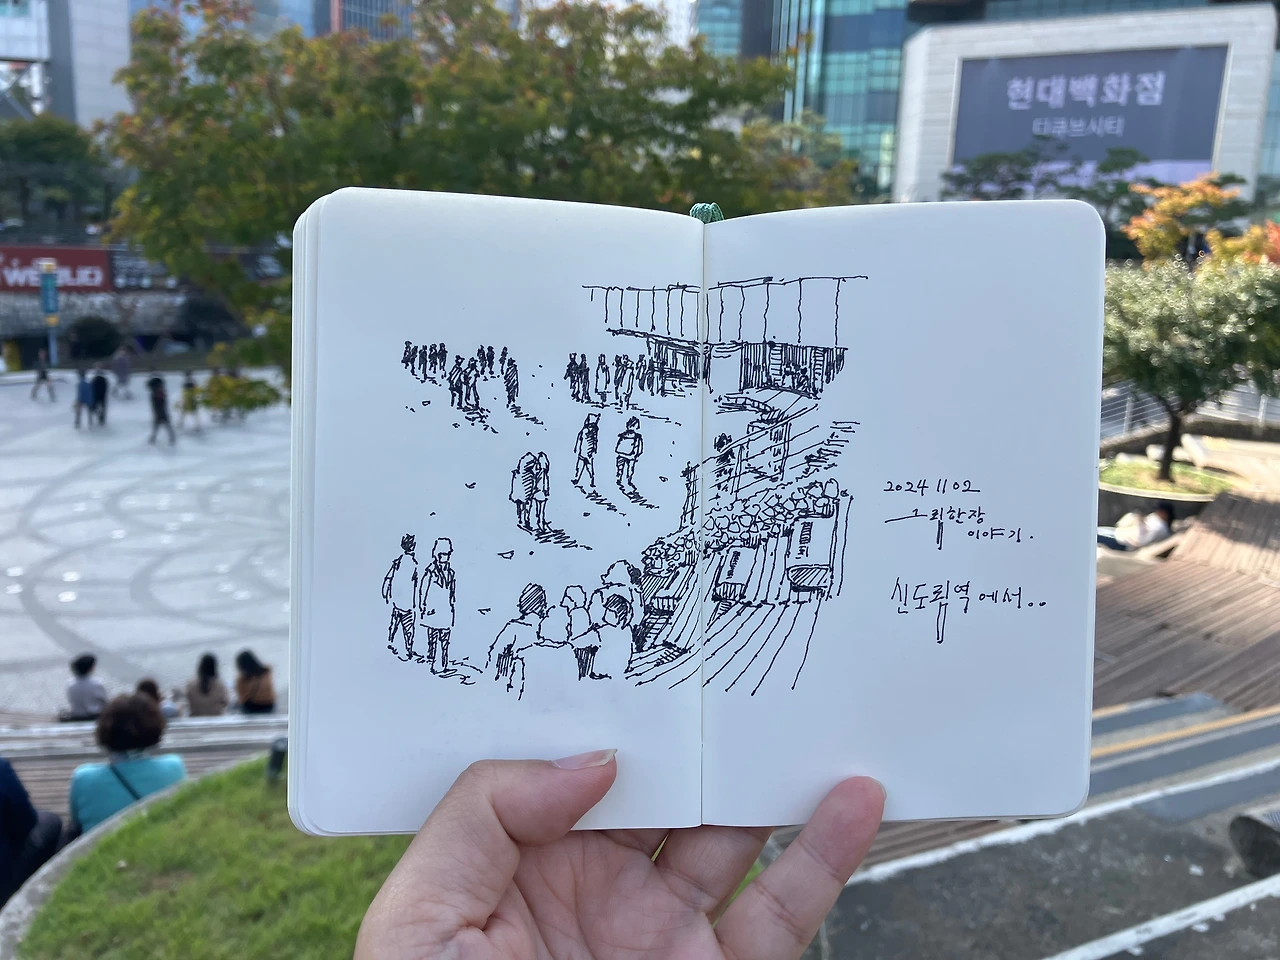 현대백화점
디큐브시티
2024 11 02
그림한장
이야기.
신도림역에서..